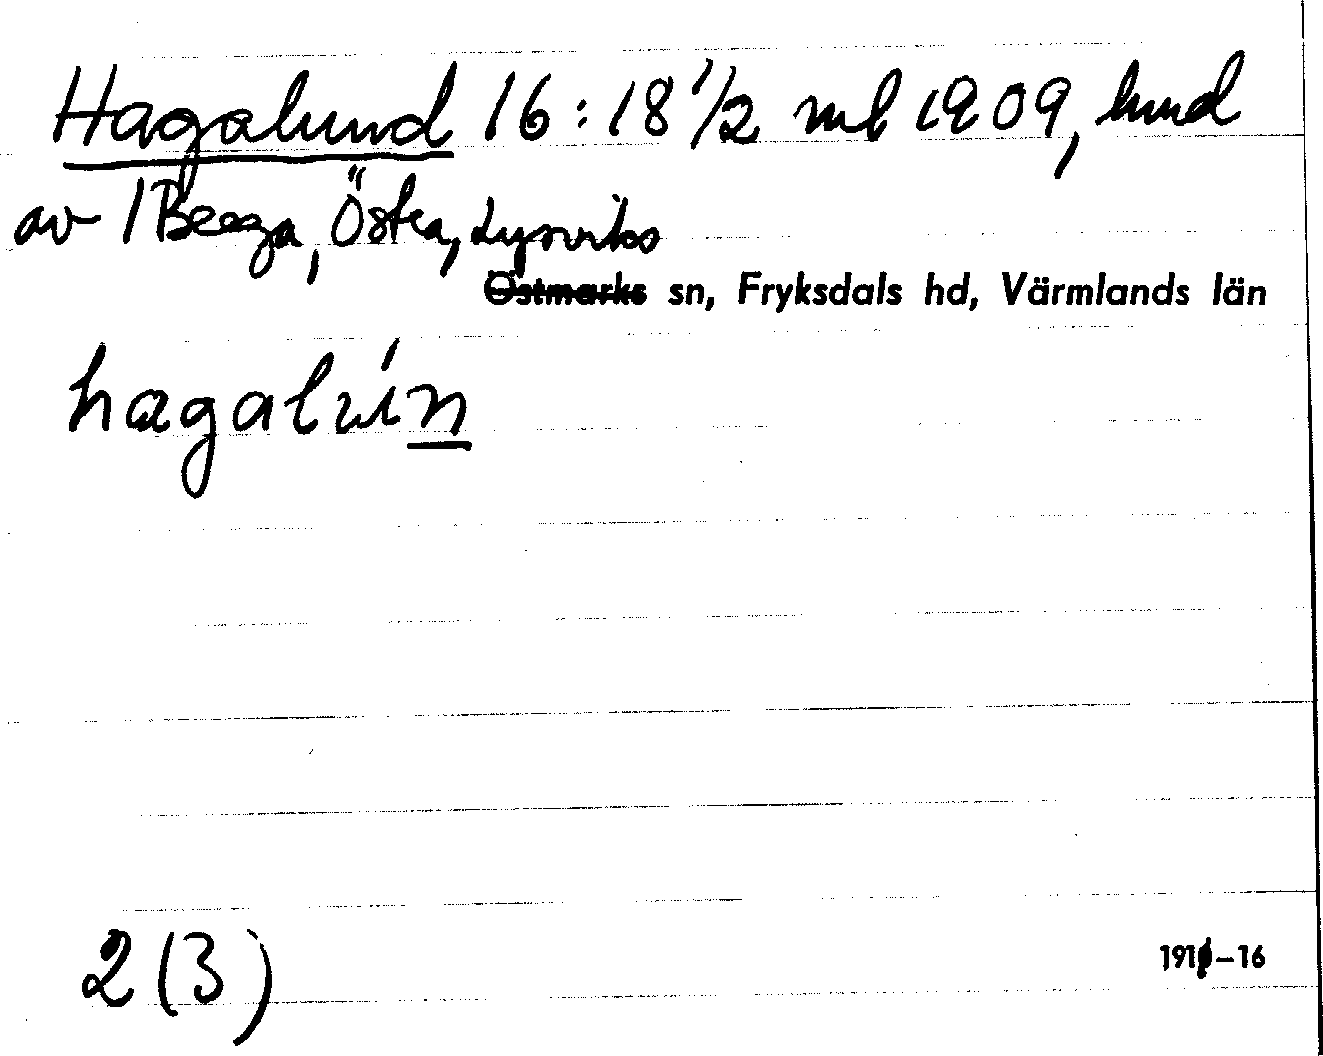 Hagalund 16:18 1/2 ml 1909, lund
av 1 Berga, Östra, Lysviks
Östmarks sn, Fryksdals hd, Värmlands län
2 (3)
191 –16